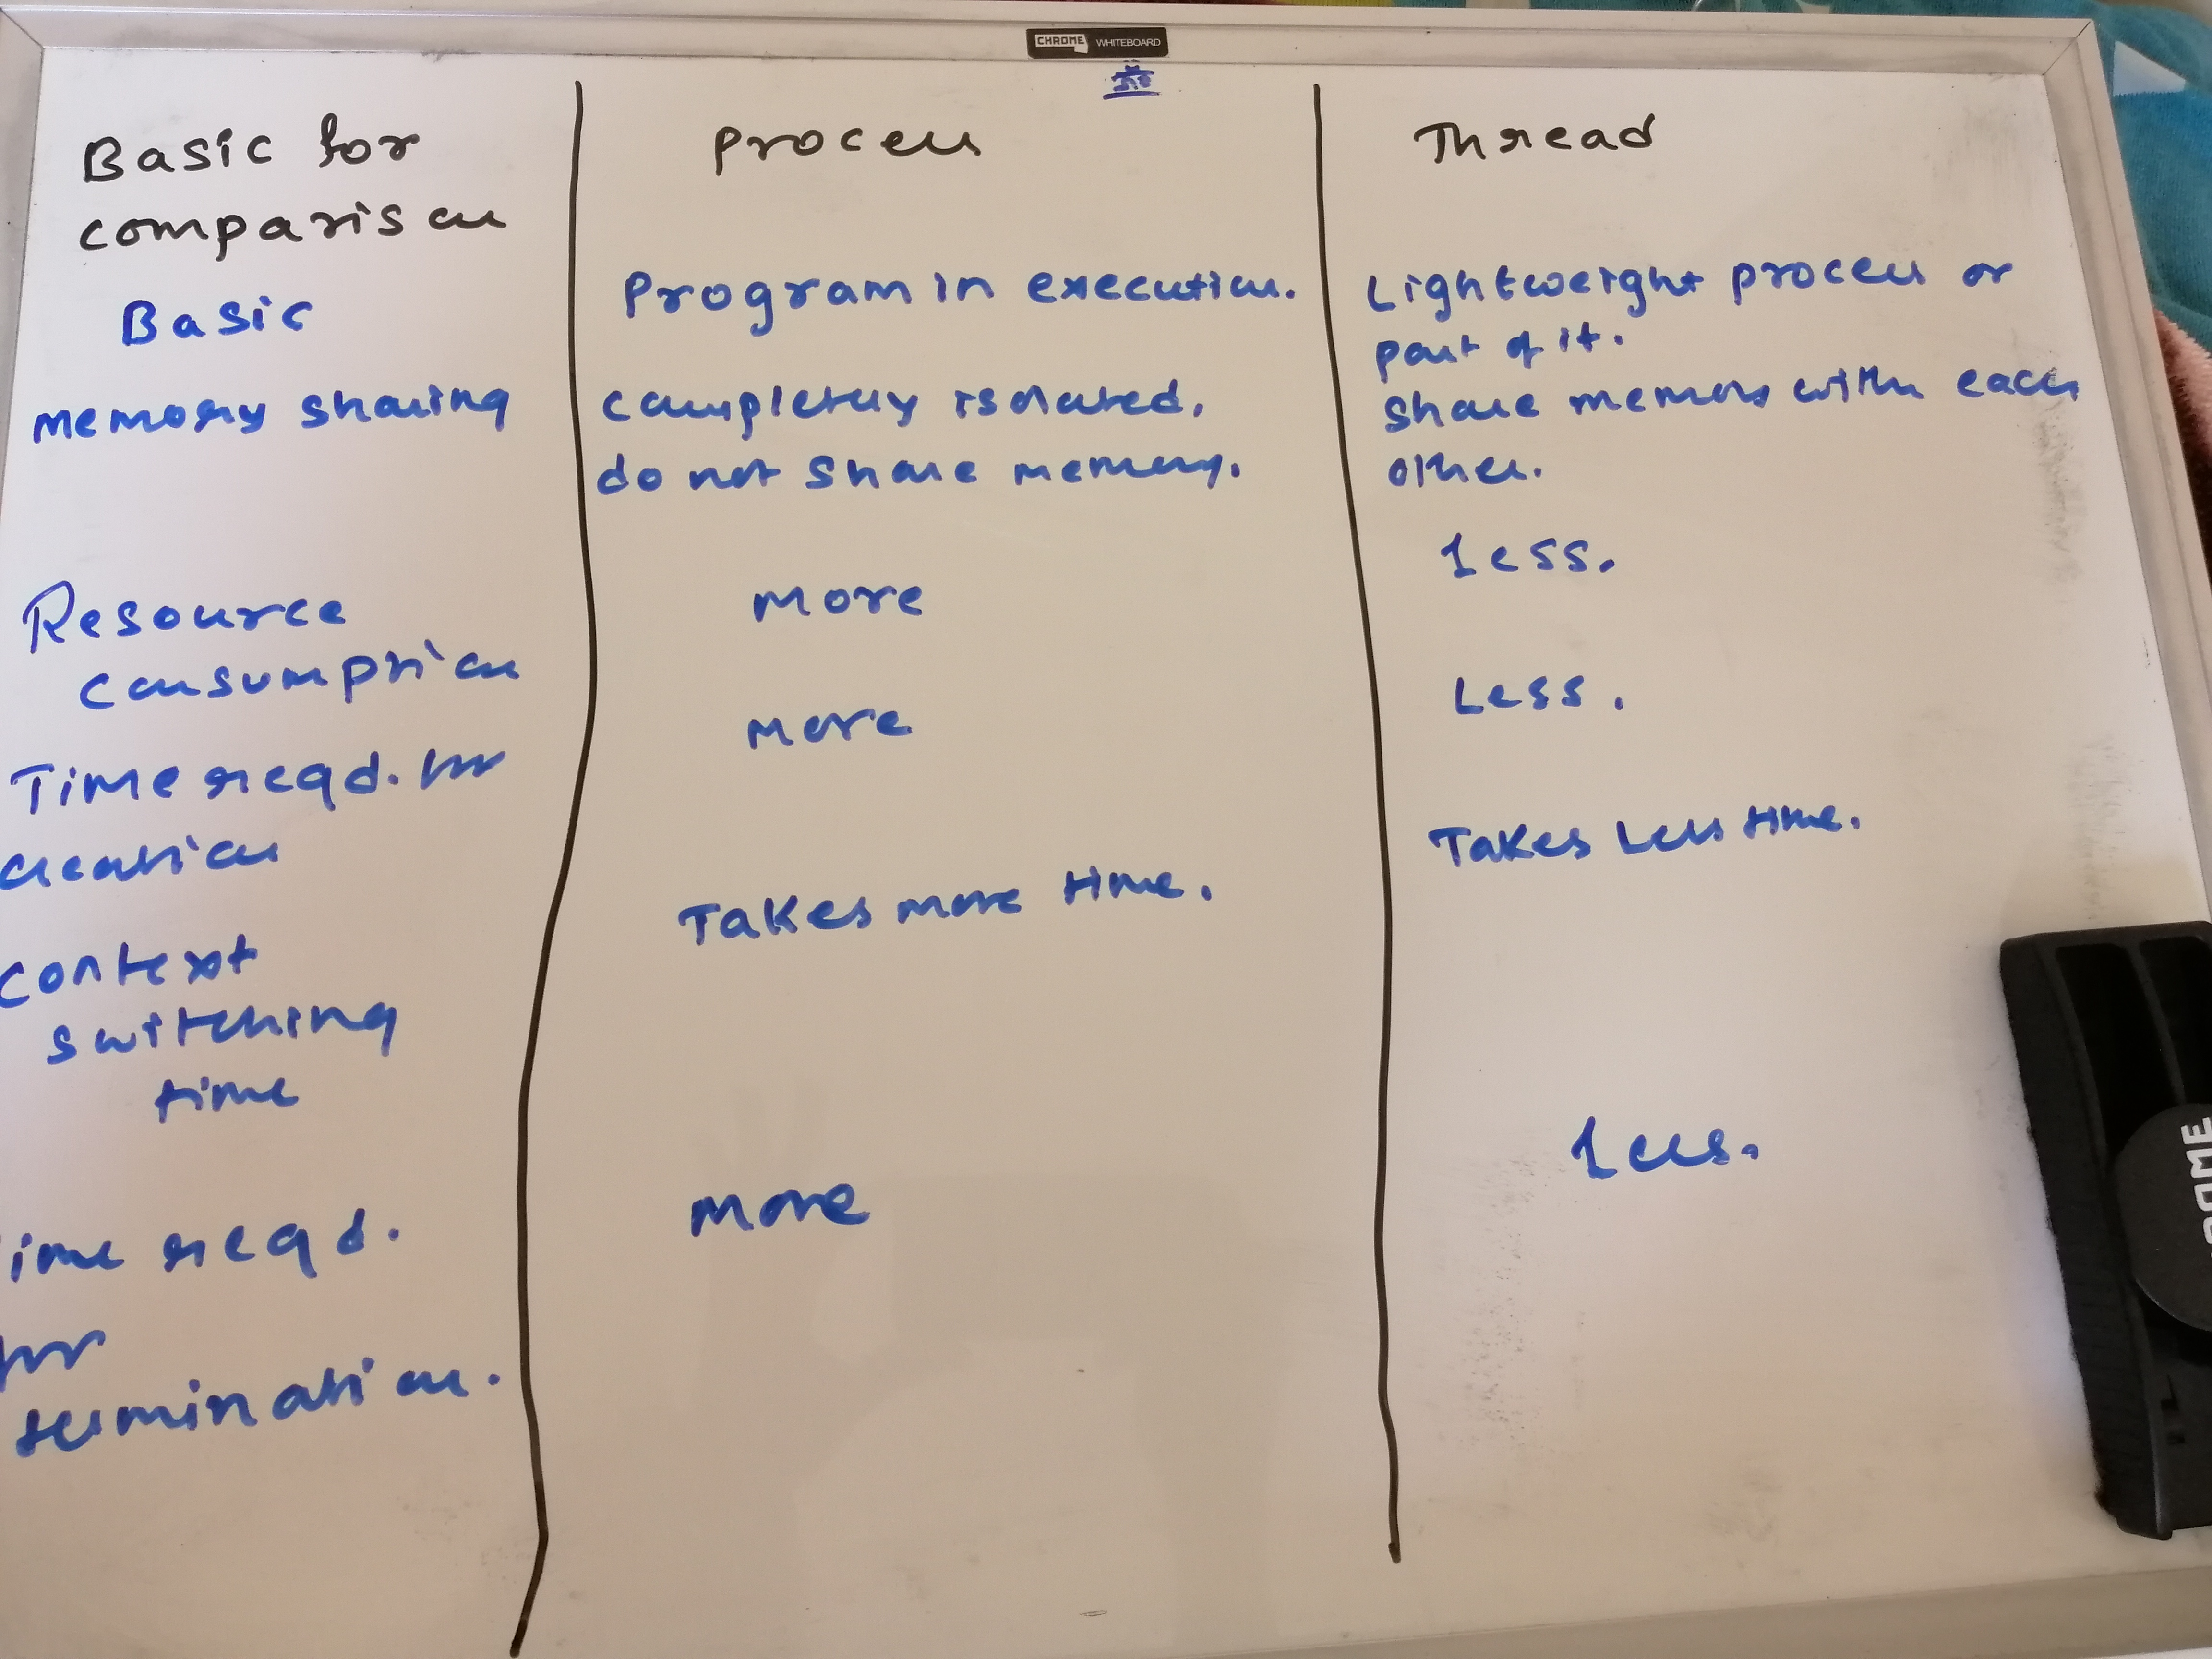 CHROME WHITEBOARD
Basic for
comparison
Process
Thread
Basic
Program in execution.
Lightweight process or
part of it.
memory sharing
completely isolated,
do not share memory.
share memory with each
other.
Resource
consumption
more
less.
Time reqd. for
creation
more
Less.
context
switching
time
Takes more time.
Takes less time.
ime reqd.
for
termination.
more
less.